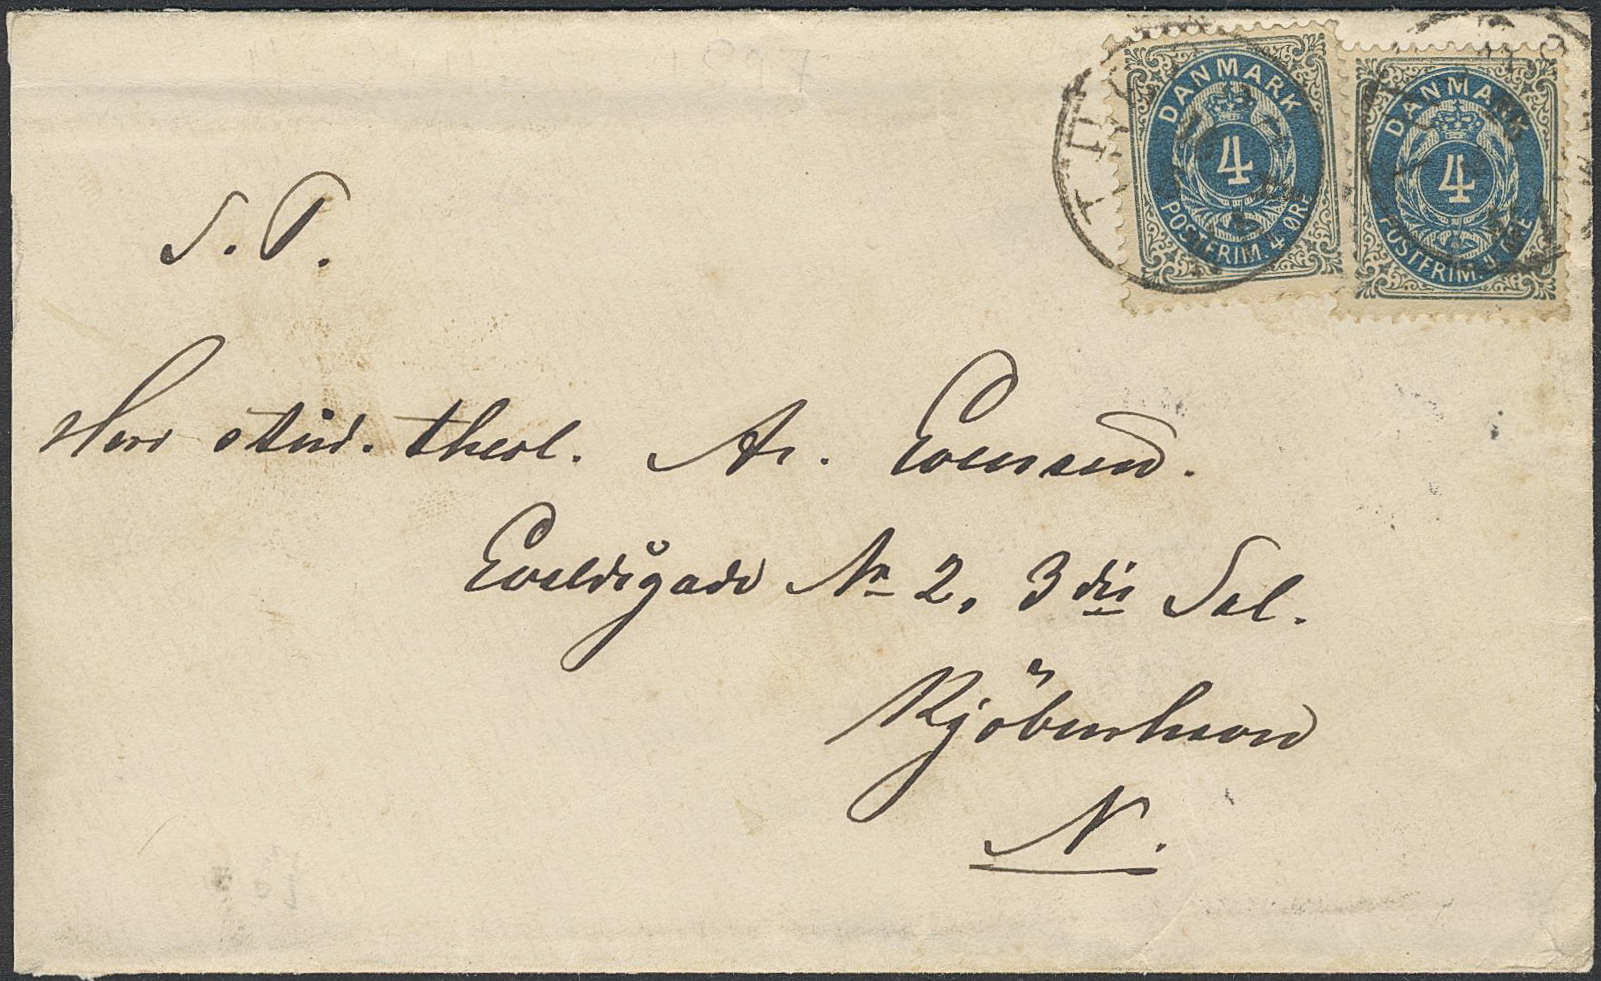 DANMARK
4
POSTFRIM. 4 ØRE
DANMARK
4
POSTFRIM. 4 ØRE
S. T.
Herr stud. theol. Ar. Evensen.
Evaldsgade Nr 2, 3die Sal.
Kjöbenhavn
N.